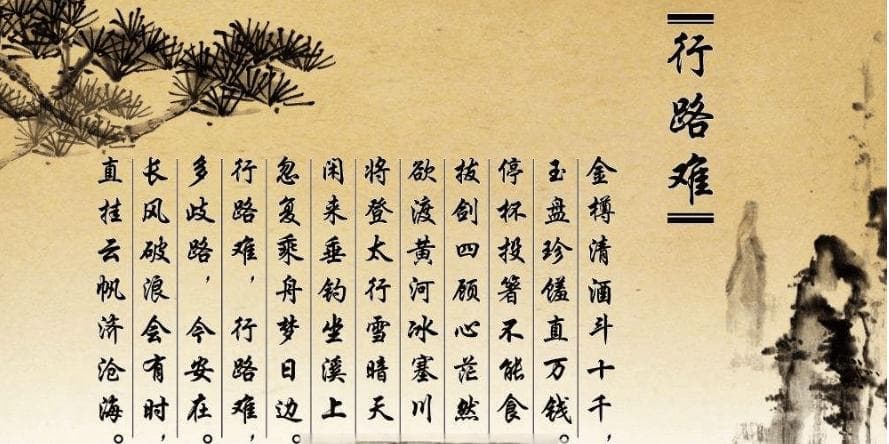 行路难
金樽清酒斗十千，
玉盘珍馐直万钱。
停杯投箸不能食
拔剑四顾心茫然
欲渡黄河冰塞川
将登太行雪暗天
闲来垂钓坐溪上
忽复乘舟梦日边。
行路难，行路难，
多歧路，今安在。
长风破浪会有时，
直挂云帆济沧海。